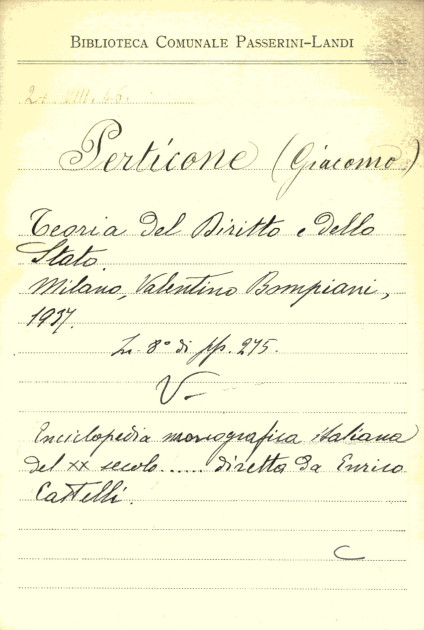 BIBLIOTECA COMUNALE PASSERINI-LANDI
Perticone (Giacomo)
Teoria del Diritto e dello
Stato.
Milano, Valentino Bompiani,
1937.
In 8° di pp. 275.
V-
Enciclopedia monografica italiana
del XX secolo...... diretta da Enrico
Castelli.
C